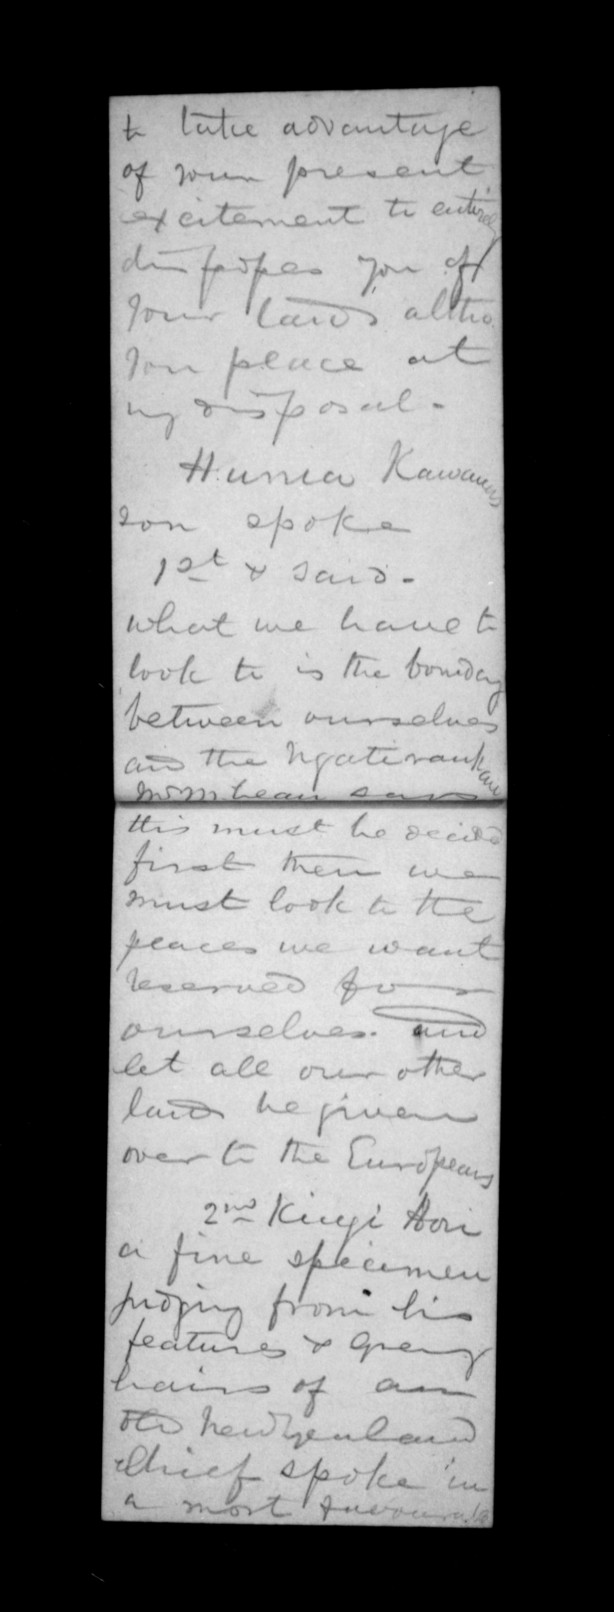 to take advantage
of your present
excitement to entirely
dispossess you of
your lands altho
you place at
my disposal -
Hunia Kawana's
son spoke
1st & said -
what we have to
look to is the boundary
between ourselves
and the Ngatiraukawa
McLean says
this must be decided
first then we
must look to the
places we want
reserved for
ourselves. and
let all our other
lands be given
over to the Europeans
2nd Kingi Hori
a fine specimen
judging from his
features & grey
hairs of an
old New Zealand
Chief spoke in
a most favourable